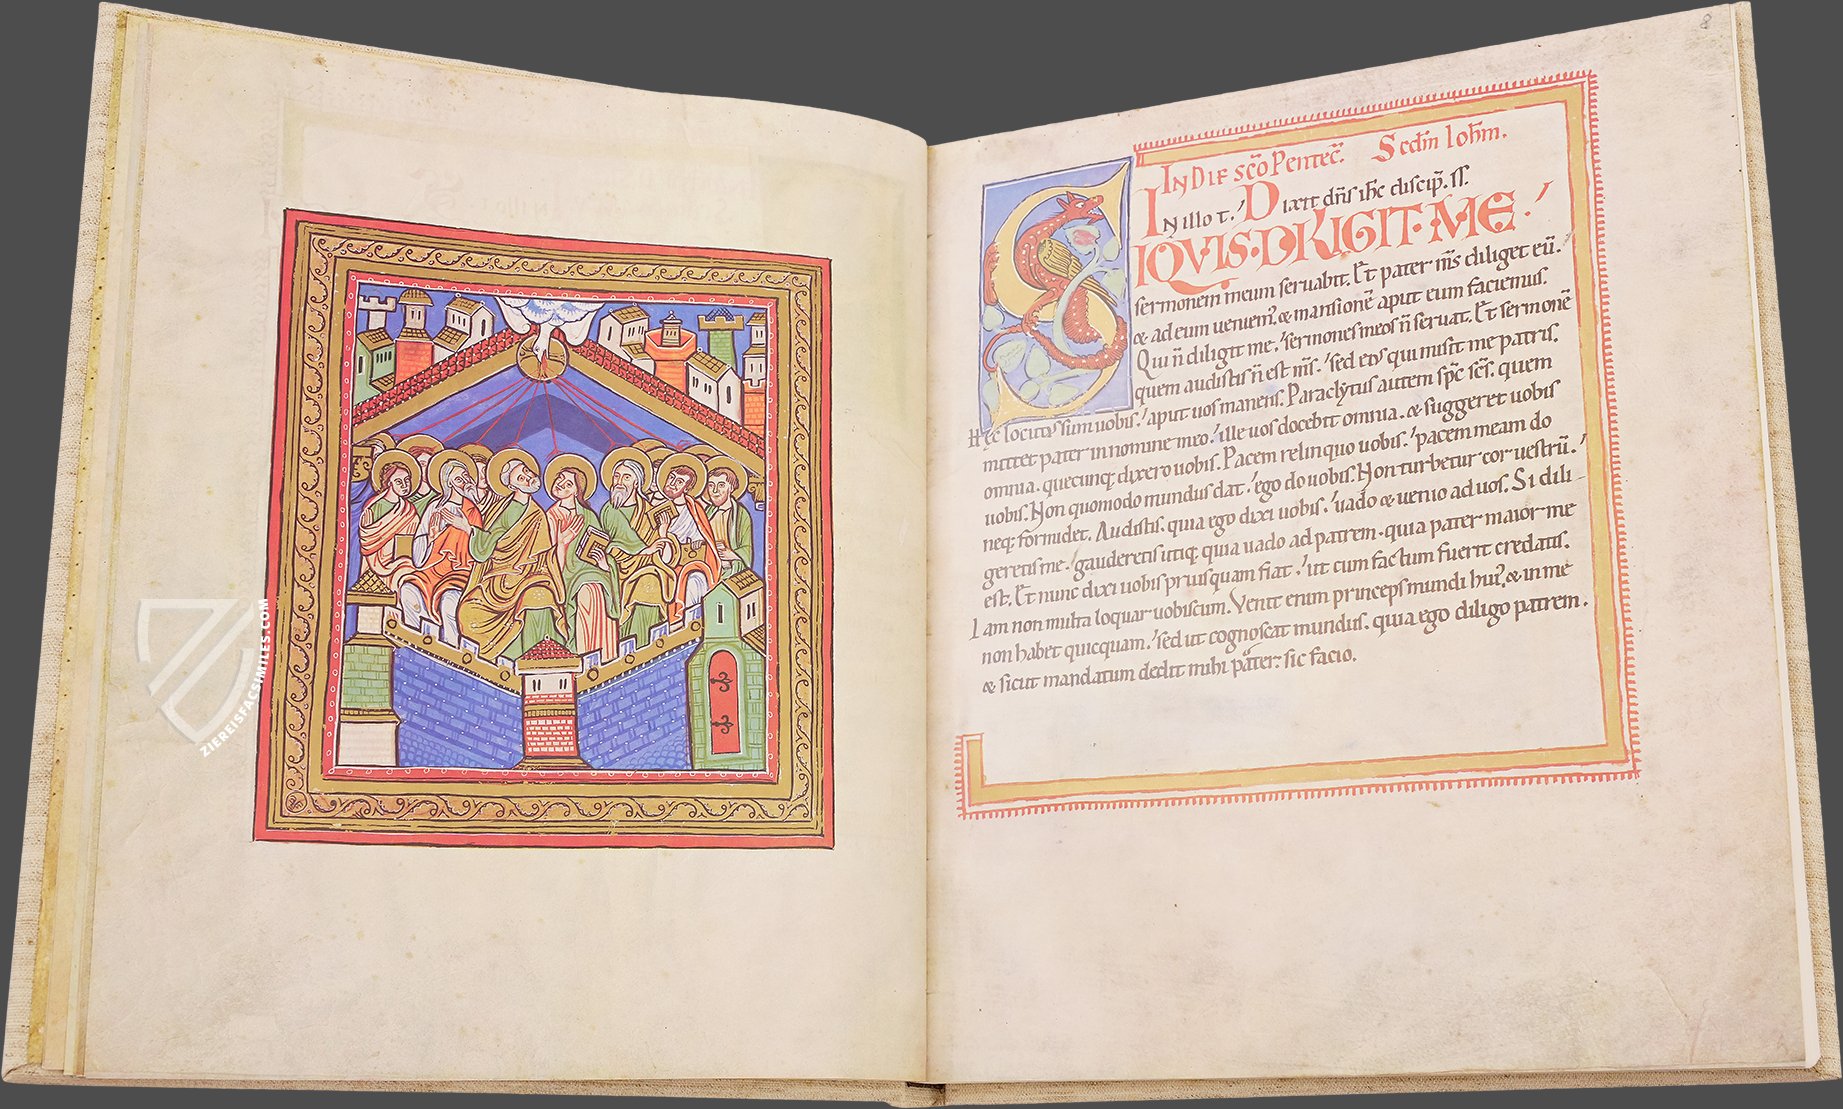 ZIEREISFACSIMILES.COM
8
IN DIE SC̄O PENTEC̄. Sc̄dm̄ Ioh̄m.
IN illo t̄.' Dixit dn̄s ih̄c discip̄. ss.
S IQVIS·DILIGIT·ME·'
sermonem meum seruabit. Et pater ms̄ diliget eū.
& ad eum ueniem', & mansionē aput eum faciemus.
Qui n̄ diligit me.' sermones meos n̄ seruat. Et sermonē
quem audistis n̄ est ms̄.' sed eius qui misit me patris.
Hec locutus sum uobis.' aput uos manens. Paraclytus autem sp̄c sc̄s. quem
mittet pater in nomine meo.' ille uos docebit omnia. & suggeret uobis
omnia. quecunq; dixero uobis. Pacem relinquo uobis.' pacem meam do
uobis. Non quomodo mundus dat.' ego do uobis. Non turbetur cor uestrū.'
neq; formidet. Audistis. quia ego dixi uobis.' uado & uenio ad uos. Si dili-
geretis me.' gauderetis utiq; quia uado ad patrem. quia pater maior me
est. Et nunc dixi uobis prius quam fiat.' ut cum factum fuerit credatis.
Iam non multa loquar uobiscum. Venit enim princeps mundi hui', & in me
non habet quicquam.' sed ut cognoscat mundus. quia ego diligo patrem.
& sicut mandatum dedit mihi pater. sic facio.